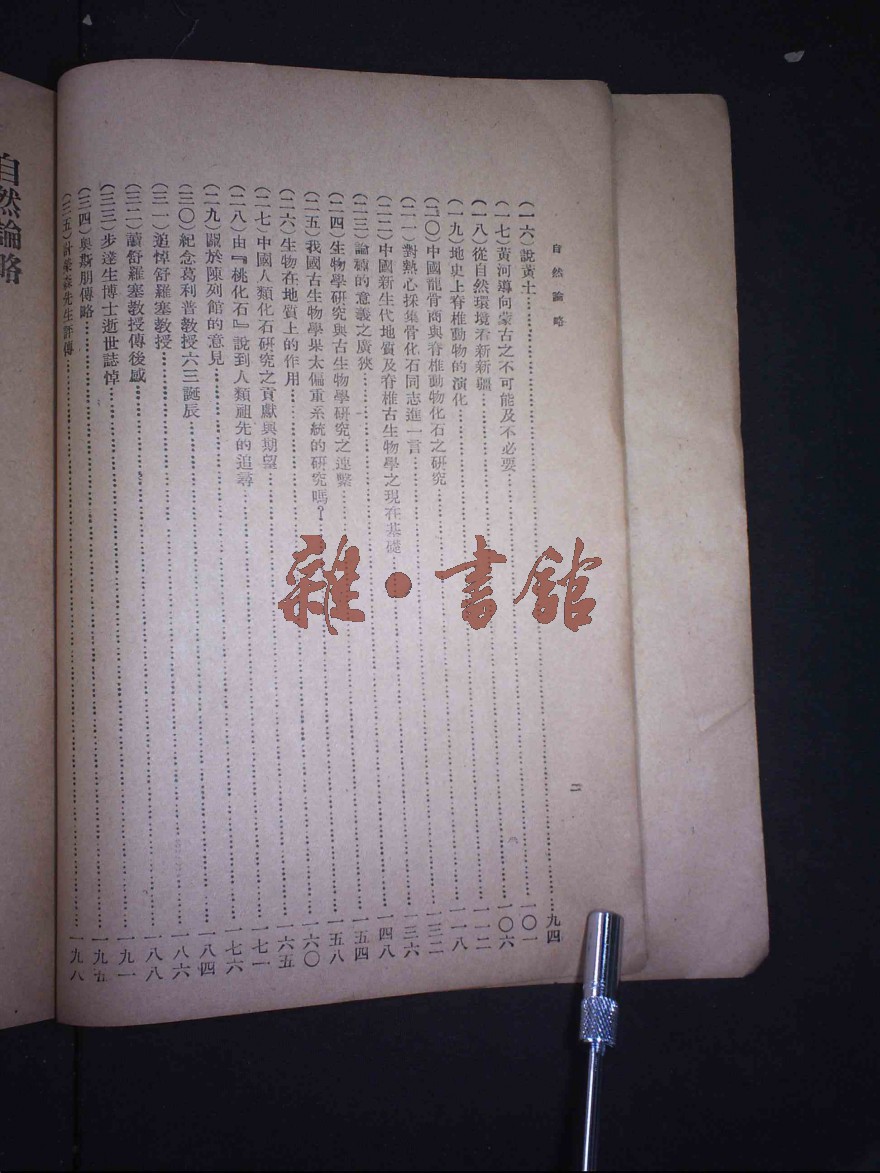 自然論略
(一六)說黃土……九四
(一七)黃河導向蒙古之不可能及不必要……一〇一
(一八)從自然環境看新新疆……一〇六
(一九)地史上脊椎動物的演化……一一二
(二〇)中國龍骨商與脊椎動物化石之研究……一一八
(二一)對熱心採集骨化石同志進一言……一三二
(二二)中國新生代地質及脊椎古生物學之現在基礎……一三六
(二三)論種的意義之廣狹……一四八
(二四)生物學研究與古生物學研究之連繫……一五四
(二五)我國古生物學果太偏重系統的研究嗎?……一五八
(二六)生物在地質上的作用……一六〇
(二七)中國人類化石研究之貢獻與期望……一六五
(二八)由『桃化石』說到人類祖先的追尋……一七一
(二九)關於陳列館的意見……一七六
(三〇)紀念葛利普教授六三誕辰……一八四
(三一)追悼舒羅塞教授……一八六
(三二)讀舒羅塞教授傳後感……一八八
(三三)步達生博士逝世誌悼……一九一
(三四)奧斯朋傳略……一九五
(三五)計榮森先生評傳……一九八
二
自然論略
雜·書館